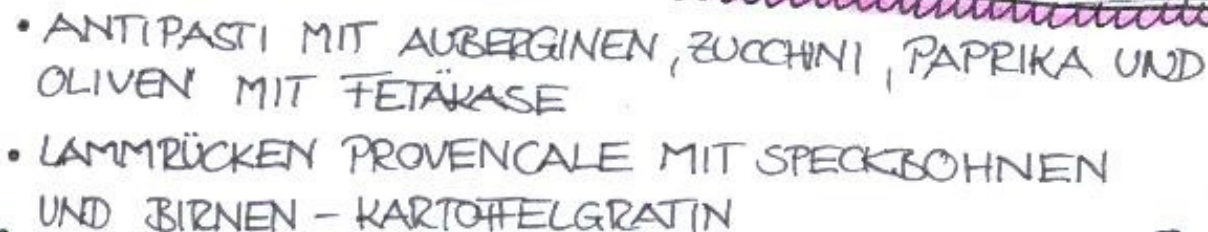 • ANTIPASTI MIT AUBERGINEN, ZUCCHINI, PAPRIKA UND
OLIVEN MIT FETAKÄSE
• LAMMRÜCKEN PROVENCALE MIT SPECKBOHNEN
UND BIRNEN - KARTOFFELGRATIN